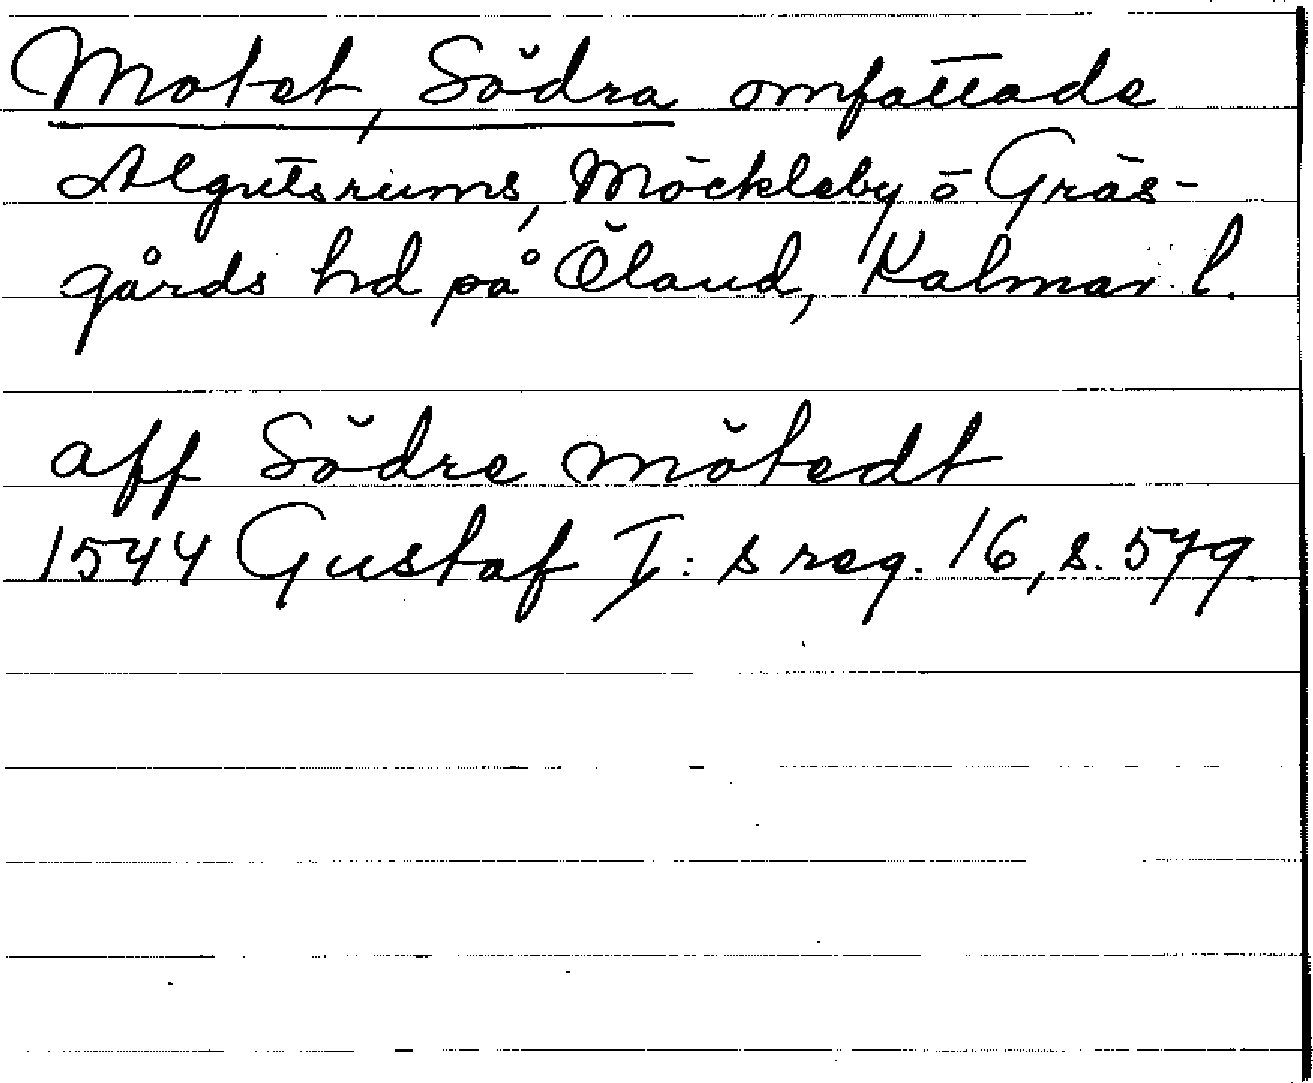 Motet, Södra omfattade
Algutsrums, Möckleby o Gräs-
gårds hd på Öland, Kalmar l.
aff Södre mötedt
1544 Gustaf I:s reg. 16, s. 579